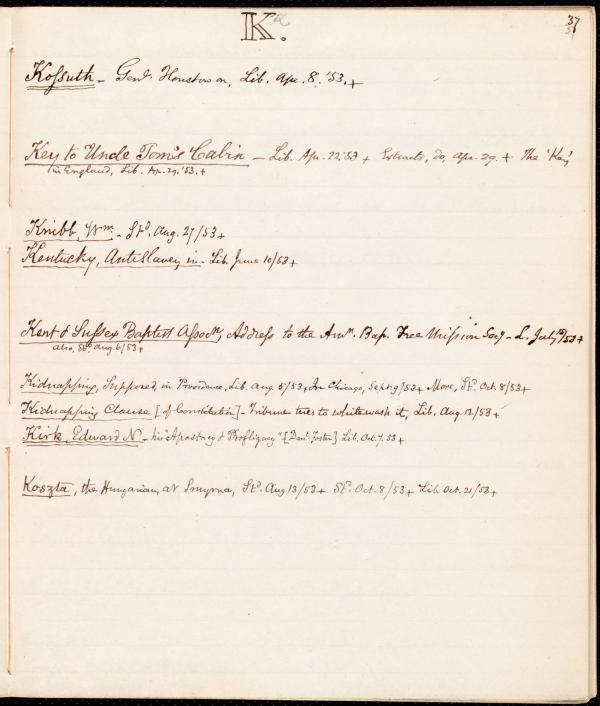 K.
37
Kossuth - Genl. Houston on, Lib. Apr. 8, '53.+
Key to Uncle Tom's Cabin - Lib. Apr. 22, '53 + Extracts, do, Apr. 29. + The 'Key'
in England, Lib. Apr. 29, '53.+
Knibb, Wm. - Std. Aug. 27/53+
Kentucky, Antislavery in - Lib. June 10/53+
Kent & Sussex Baptist Assocn, Address to the Amn. Bap. Free Mission Socy - L. July /53+
also, Std. Aug. 6/53+
Kidnapping, Supposed, in Providence, Lib. Aug. 5/53+ In Chicago, Sept. 9/53+ More, St. Oct. 8/53+
Kidnapping Clause [of Constitution] - Tribune tries to whitewash it, Lib. Aug. 12/53+
Kirk, Edward N. - his "Apostacy & Profligacy" [Danl. Foster] Lib. Oct. 7. 53+
Koszta, the Hungarian, at Smyrna, Std. Aug 13/53+ St. Oct. 8/53+ Lib. Oct. 21/53+